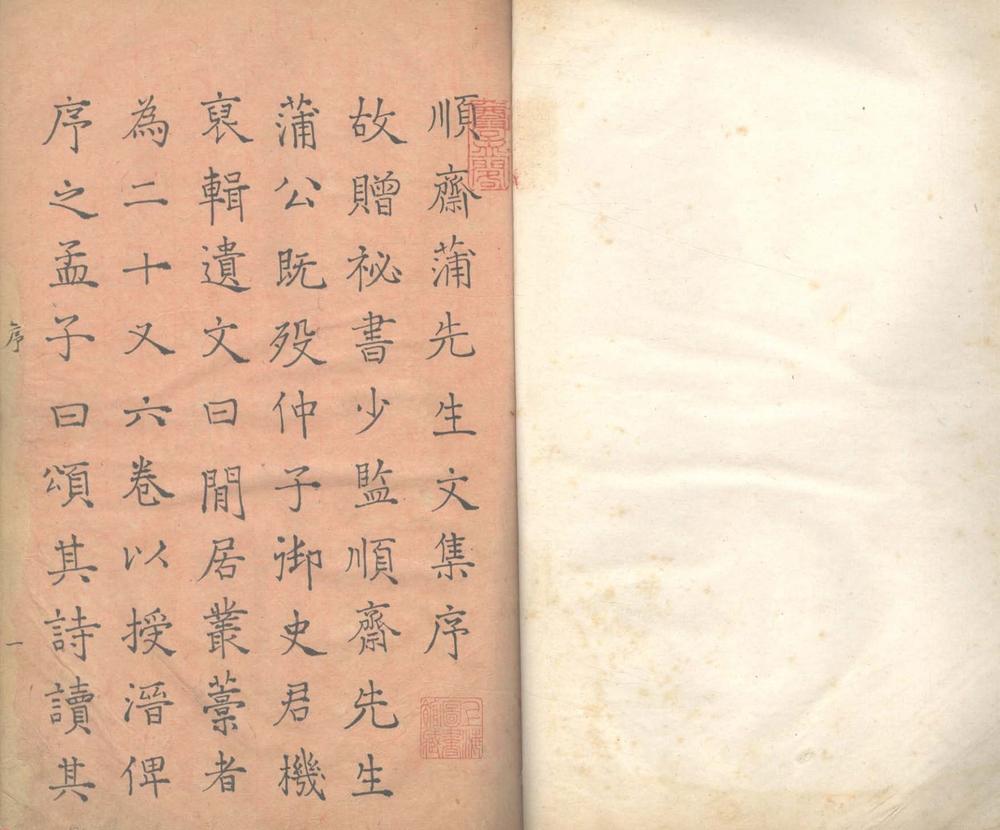 順齋蒲先生文集序
故贈祕書少監順齋先生
蒲公既歿仲子御史君機
裒輯遺文曰閒居叢藁者
為二十又六卷以授溍俾
序之孟子曰頌其詩讀其
序
一
上海圖書館藏